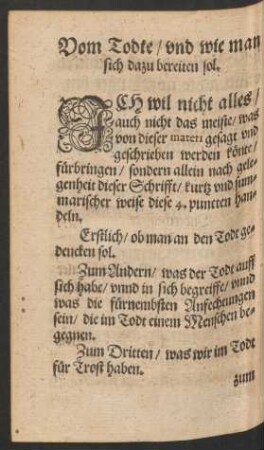 Vom Todte / vnd wie man
sich dazu bereiten sol.
ICH wil nicht alles /
auch nicht das meiste / was
von dieser materi gesagt vnd
geschrieben werden könte /
fürbringen / sondern allein nach gele-
genheit dieser Schrifft / kurtz vnd sum-
marischer weise diese 4. puncten han-
deln.
Erstlich / ob man an den Todt ge-
dencken sol.
Zum Andern / was der Todt auff
sich habe / vnnd in sich begreiffe / vnnd
was die fürnembsten Anfechtungen
sein / die im Todt einem Menschen be-
gegnen.
Zum Dritten / was wir im Todt
für Trost haben.
zum